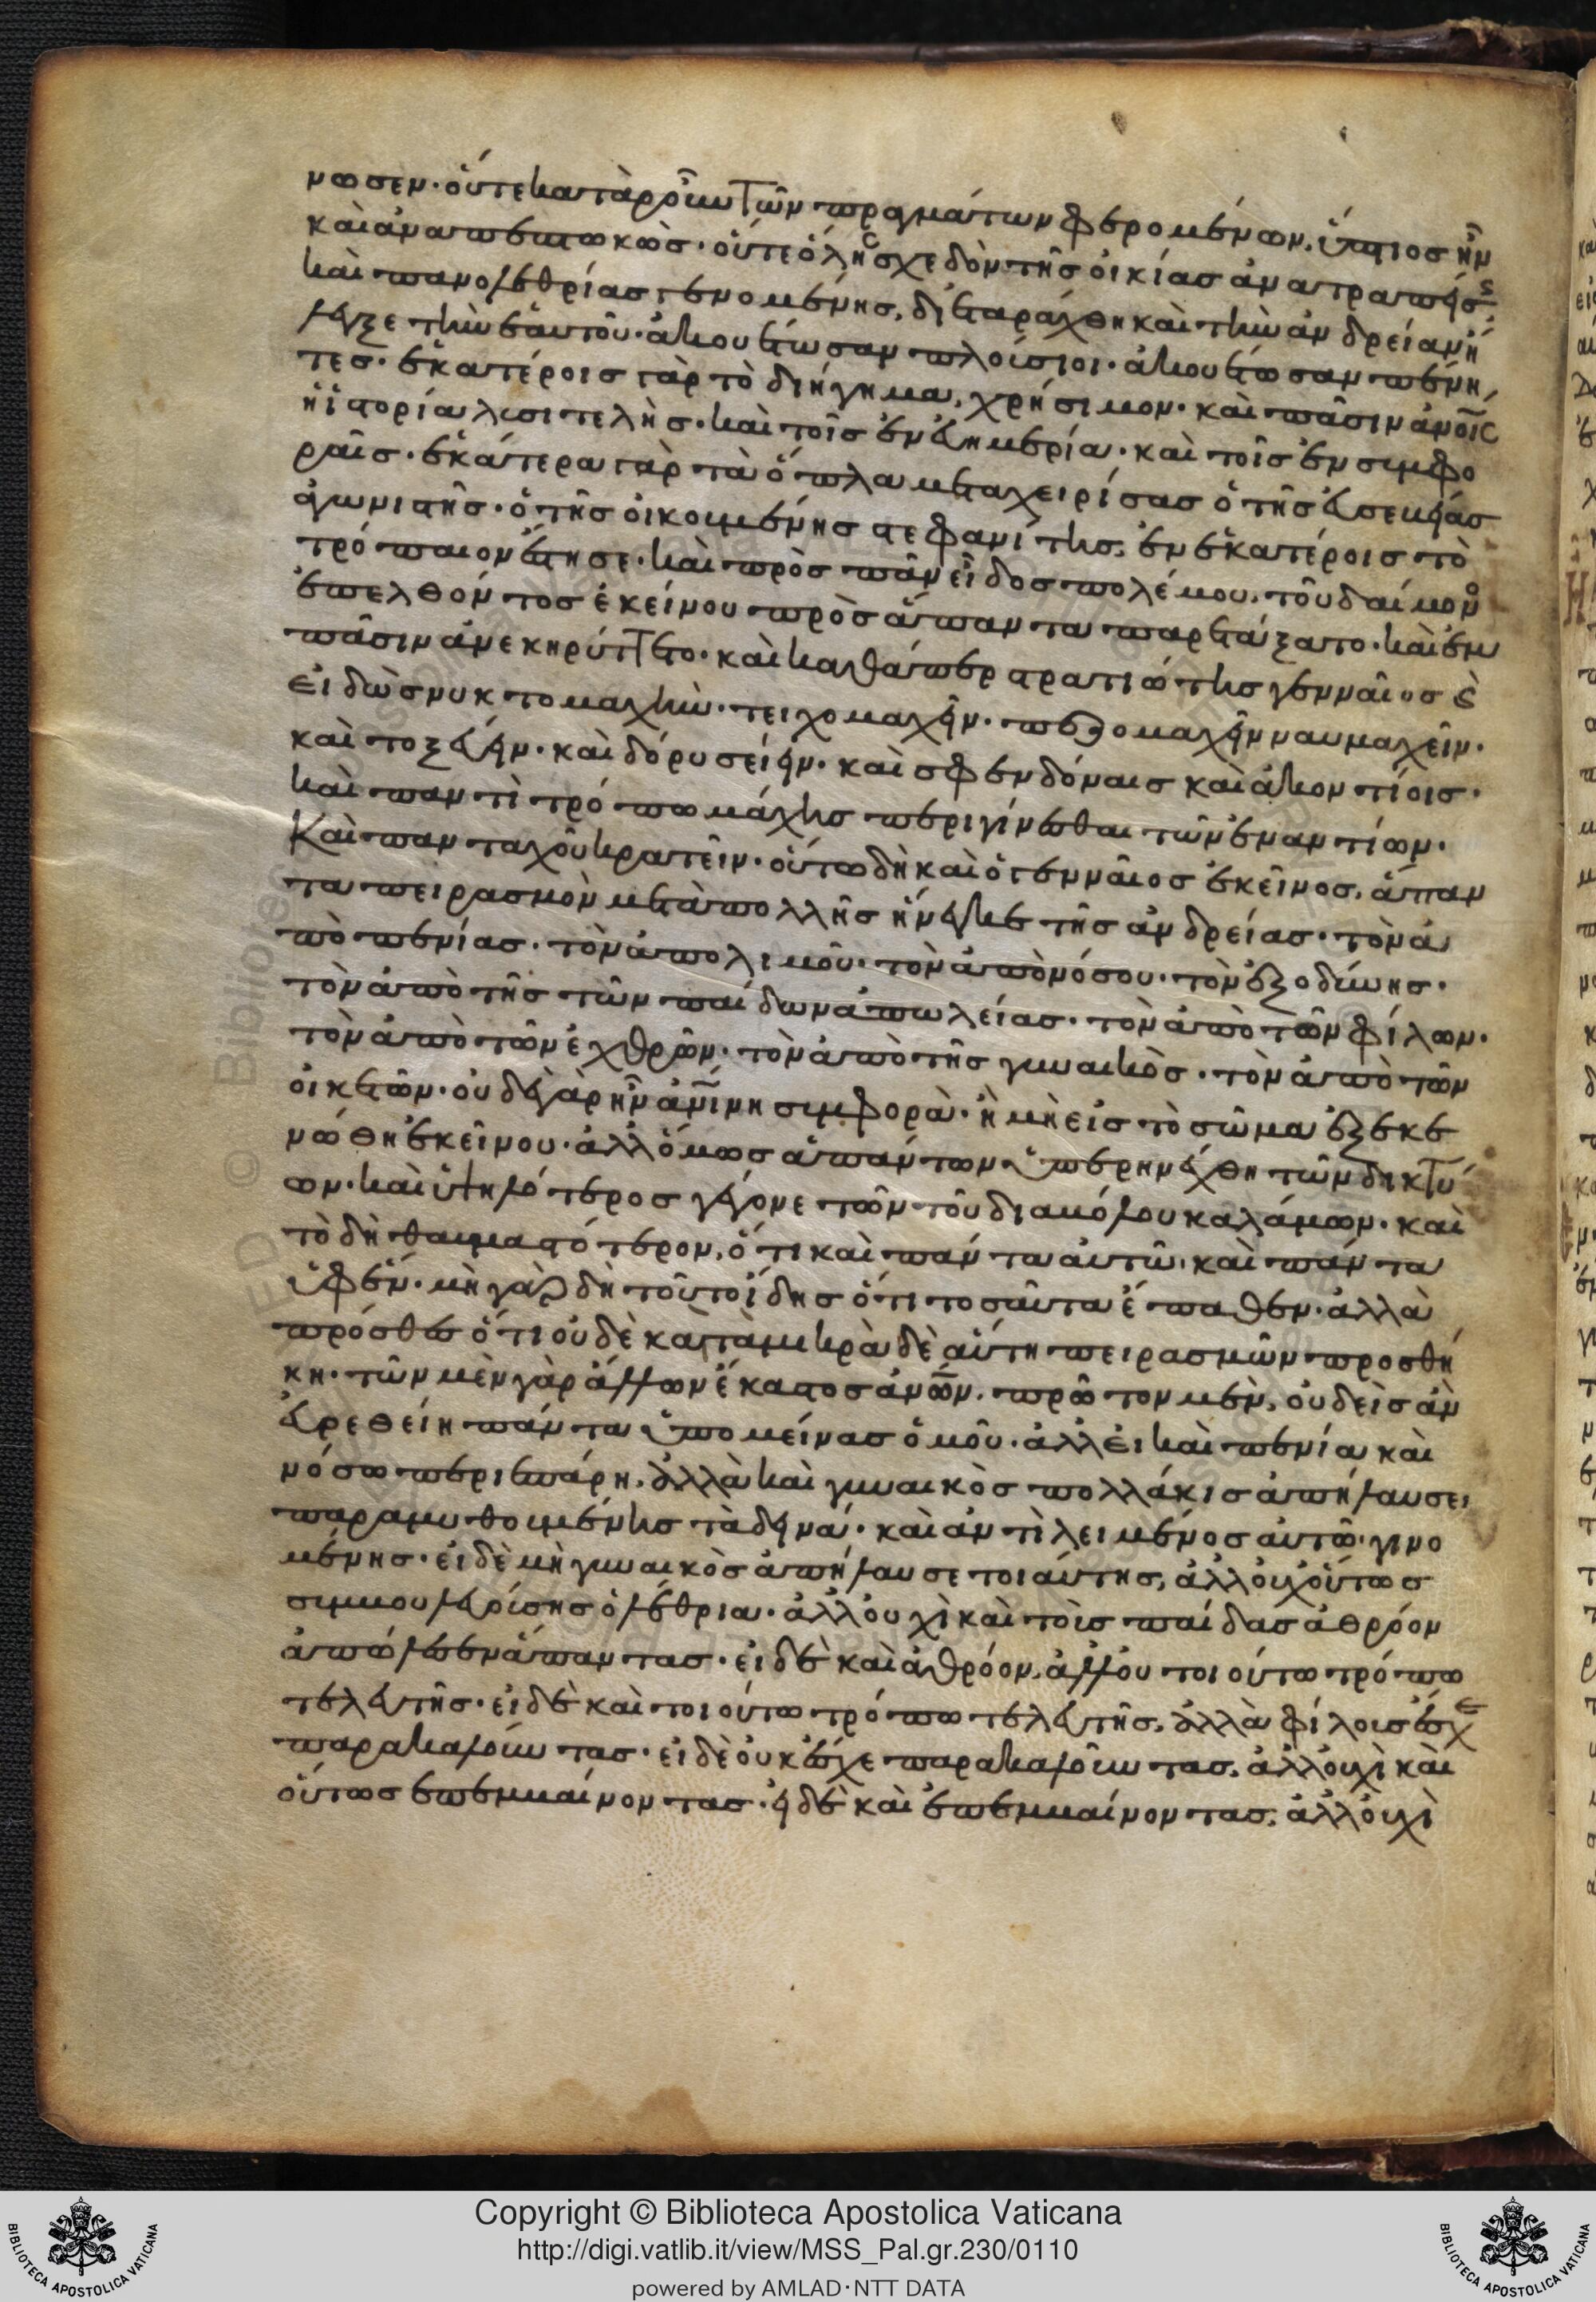 νωσεν· οὔτε κατὰ ῥοῦν τῶν πραγμάτων φερομένων, ὕπτιος ἦν
καὶ ἀναπεπτωκὼς· οὔτε ὅλης σχεδὸν τῆς οἰκίας ἀνατραπείσης
καὶ πανολεθρίας γενομένης, διεταράχθη καὶ τὴν ἀνδρείαν ἤ
λεγξε τὴν ἑαυτοῦ· ἀκουέτωσαν πλούσιοι· ἀκουέτωσαν πένη
τες· ἑκατέροις γὰρ τὸ διήγημα, χρήσιμον· καὶ πᾶσιν ἀνοις
ἡ ἱστορία λυσιτελὴς· καὶ τοῖς ἐν εὐημερία· καὶ τοῖς ἐν συμφο
ραῖς· ἑκάτερα γὰρ τὰ ὅπλα μεταχειρίσας ὁ τῆς εὐσεβείας
ἀγωνιστὴς· ὁ τῆς οἰκουμένης στεφανίτης, ἐν ἑκατέροις τὸ
τρόπαιον ἔστησε· καὶ πρὸς πᾶν εἶδος πολέμου, τοῦ δαίμονος
ἐπελθόντος ἐκείνου πρὸς ἅπαντα παρετάξατο· καὶ ἐν
πᾶσιν ἀνεκηρύττετο· καὶ καθάπερ στρατιώτης γενναῖος
εἰδὼς νυκτομαχεῖν· τειχομαχεῖν· πεζομαχεῖν ναυμαχεῖν·
καὶ τοξεύειν· καὶ δόρυ σείειν· καὶ σφενδόναις καὶ ἀκοντίοις·
καὶ παντὶ τρόπω μάχης περιγίνεσθαι τῶν ἐναντίων·
Καὶ πανταχοῦ κρατεῖν· οὕτω δὴ καὶ ὁ γενναῖος ἐκεῖνος, ἅπαν
τα πειρασμὸν μετὰ πολλῆς ἤνεγκε τῆς ἀνδρείας· τὸν ἀ
πὸ πενίας· τὸν ἀπὸ λιμοῦ· τὸν ἀπὸ νόσου· τὸν ἐξ ὀδύνης·
τὸν ἀπὸ τῆς τῶν παίδων ἀπωλείας· τὸν ἀπὸ τῶν φίλων·
τὸν ἀπὸ τῶν ἐχθρῶν· τὸν ἀπὸ τῆς γυναικὸς· τὸν ἀπὸ τῶν
οἰκετῶν· οὐδὲ γὰρ ἦν ἀνίνη συμφορὰ· ἣ μὴ εἰς τὸ σῶμα ἐξεκε
νώθη ἐκείνου· ἀλλ' ὅμως ἁπάντων ὑπερηνέχθη τῶν δικτύ
ων· καὶ ὑψηλότερος γέγονε τῶν τοῦ διαβόλου καλάμων· καὶ
τὸ δὴ θαυμαστότερον, ὅτι καὶ πάντα αὐτῶ, καὶ πάντα
ὑφ' ἕν· μὴ γὰρ δὴ τοῦτο ἴδης ὅτι τοσαῦτα ἔπαθεν· ἀλλὰ
πρόσθες ὅτι οὐδὲ κατὰ μικρὰ δὲ αὕτη πειρασμῶν προσθή
κη· τῶν μὲν γὰρ ἄλλων ἕκαστος ἀνων, πρῶτον μὲν, οὐδεὶς ἂν
εὑρεθείη πάντα ὑπομείνας ὁμοῦ· ἀλλ' εἰ καὶ πενία καὶ
νόσω περιεπάρη, ἀλλὰ καὶ γυναικὸς πολλάκις ἀπήλαυσε,
παραμυθουμένης τὰ δεινά· καὶ ἀντὶ λειμένος αὐτῶ γινο
μένης· εἰ δὲ μὴ γυναικὸς ἀπήλαυσε τοιαύτης, ἀλλ' οὐχ οὕτως
συμβουλευούσης ὀλέθρια· ἀλλ' οὐχὶ καὶ τοὺς παῖδας ἀθρόον
ἀπώλεσεν ἅπαντας· εἰ δὲ καὶ ἀθρόον, ἀλλ' οὐ τοιούτω τρόπω
τελευτῆς· εἰ δὲ καὶ τοιούτω τρόπω τελευτῆς, ἀλλὰ φίλους ἔσχε
παρακαλοῦντας· εἰ δὲ οὐκ ἔσχε παρακαλοῦντας, ἀλλ' οὐχὶ καὶ
οὕτως ἐπεμβαίνοντας· εἰ δὲ καὶ ἐπεμβαίνοντας, ἀλλ' οὐχὶ
Copyright © Biblioteca Apostolica Vaticana
http://digi.vatlib.it/view/MSS_Pal.gr.230/0110
powered by AMLAD·NTT DATA